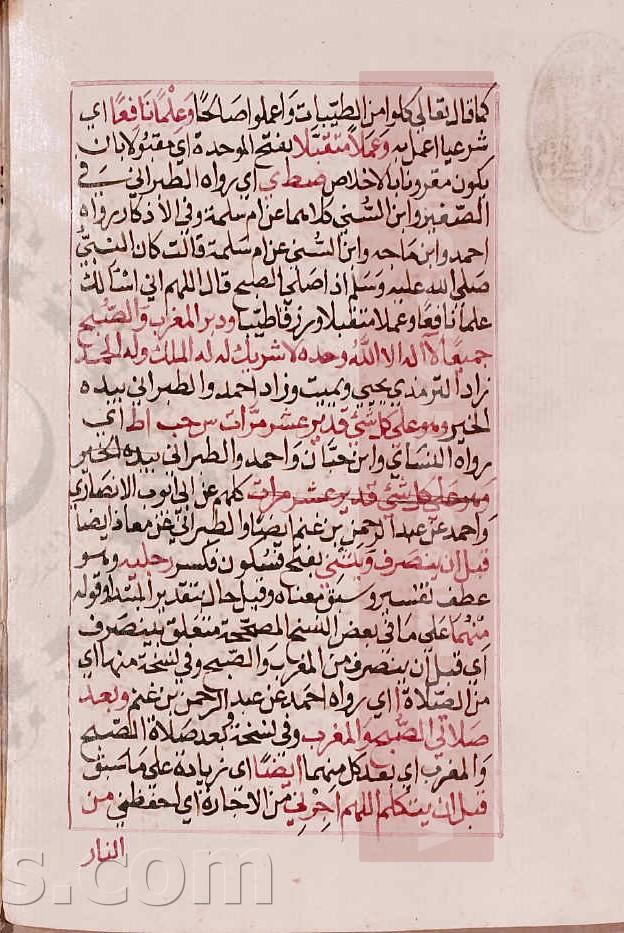 كما قال تعالى كلوا من الطيبات واعملوا صالحا وَعِلْمًا نَافِعًا اي
شرعيا اعمل به وَعَمَلًا مُتَقَبَّلا بفتح الموحدة اي مقبولا بان
يكون مقرونا بالاخلاص صط ي اي رواه الطبراني في
الصغير وابن السُّني كلاهما عن ام سلمة وفي الأذكار رواه
احمد وابن ماجه وابن السُّنى عن ام سلمة قالت كان النبيُّ
صلى الله عليه وسلم اذا صلى الصبح قال اللهم اني اسْألك
علما نافعًا وعملا متقبلا ورزقا طيبا ودبر المغرب وَالصُّبح
جميعًا لَا اله الا اللّٰهُ وحده لا شريك له له الملك وله الحمد
زاد الترمذي يحيي ويميت وزاد احمد والطبراني بيده
الخير وهو على كل شئ قدير عشر مرّات س حب ا ط اي
رواه النسَائي وابن حبَّان وَاحمد والطبرانى بيده الخير
وهو على كل شئ قدير عشر مرات كلهم عن ابى ايوب الانصَاري
وَاحمد عن عبد الرحمن بن غنم ايضًا والطبرانيّ عن معاذ ايضا
قبل ان ينصرف وَيثني بفتح فسُكون فكسر رجليه وهو
عطف تفسير وسبق معناه وقيل حال بتقدير المبتدا وقوله
مِنْهُمَا عَلى ما في بعض النسخ المصححة متعلق بينصَرف
اي قبل ان ينصرف من المغرب وَالصّبح وفي نسخة منها اي
من الصَّلاة أ اي رواه احمدَ عَن عبد الرحمن بن غنم وبعد
صلاتي الصُّبح وَالمغرب وفي نسخة وبعد صلاة الصّبح
وَالمغرب اي بعد كل منهما ايضًا اى زيادة على ما سبق
قبل ان يتكلم اللهم اَجِرْنِي من الاجارة اي احفظني من
النار
s.com